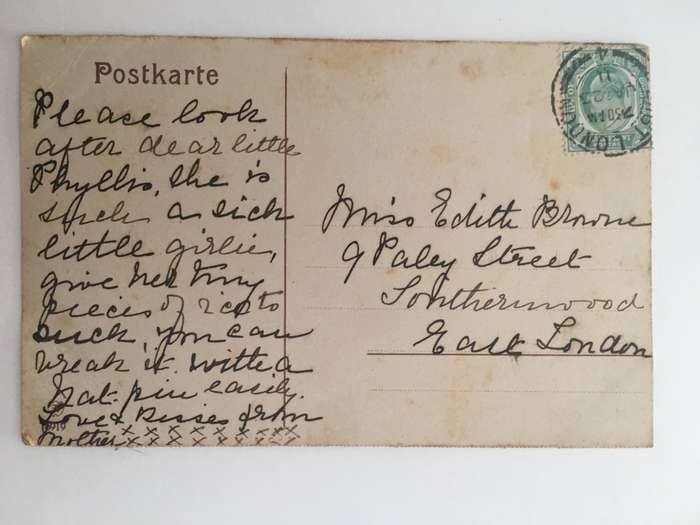 Postkarte
Please look
after dear little
Phyllis, she is
such a sick
little girlie,
give her tiny
pieces of ice to
suck, you can
break it with a
hat-pin easily.
Love & Kisses from
Mother x x x x x x x x x
x x x x x x x x
Miss Edith Browne
9 Paley Street
Southernwood
East London
EAST LONDON
7.30 PM
11